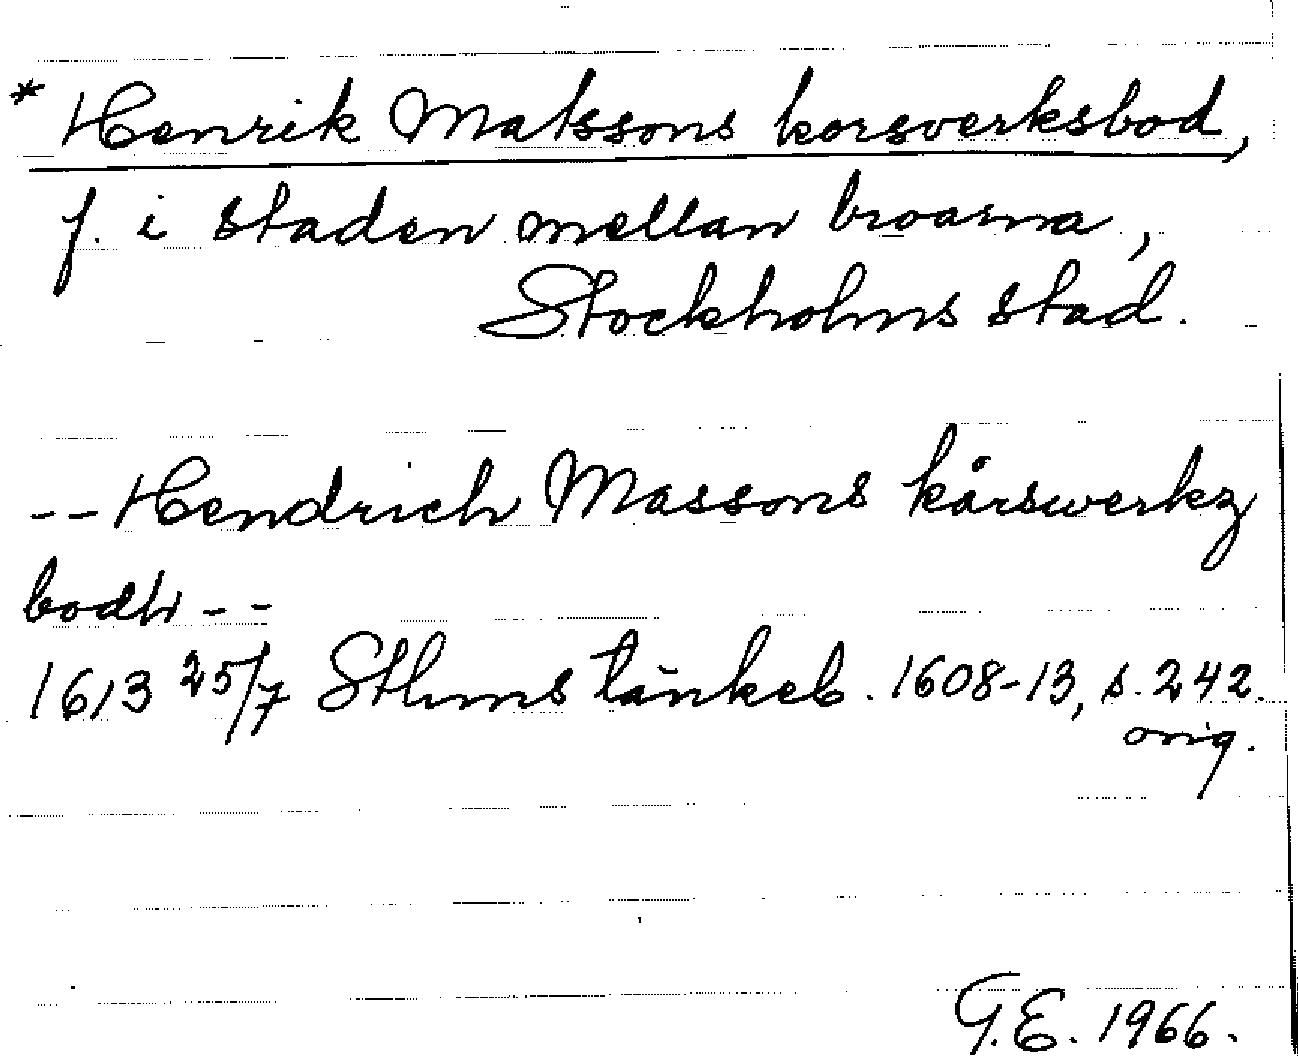 * Henrik Matssons korsverksbod,
f. i staden mellan broarna,
Stockholms stad.
-- Hendrich Massons kårswerkz
bodh --
1613 25/7 Sthms tänkeb. 1608-13, s. 242.
orig.
G.E. 1966.